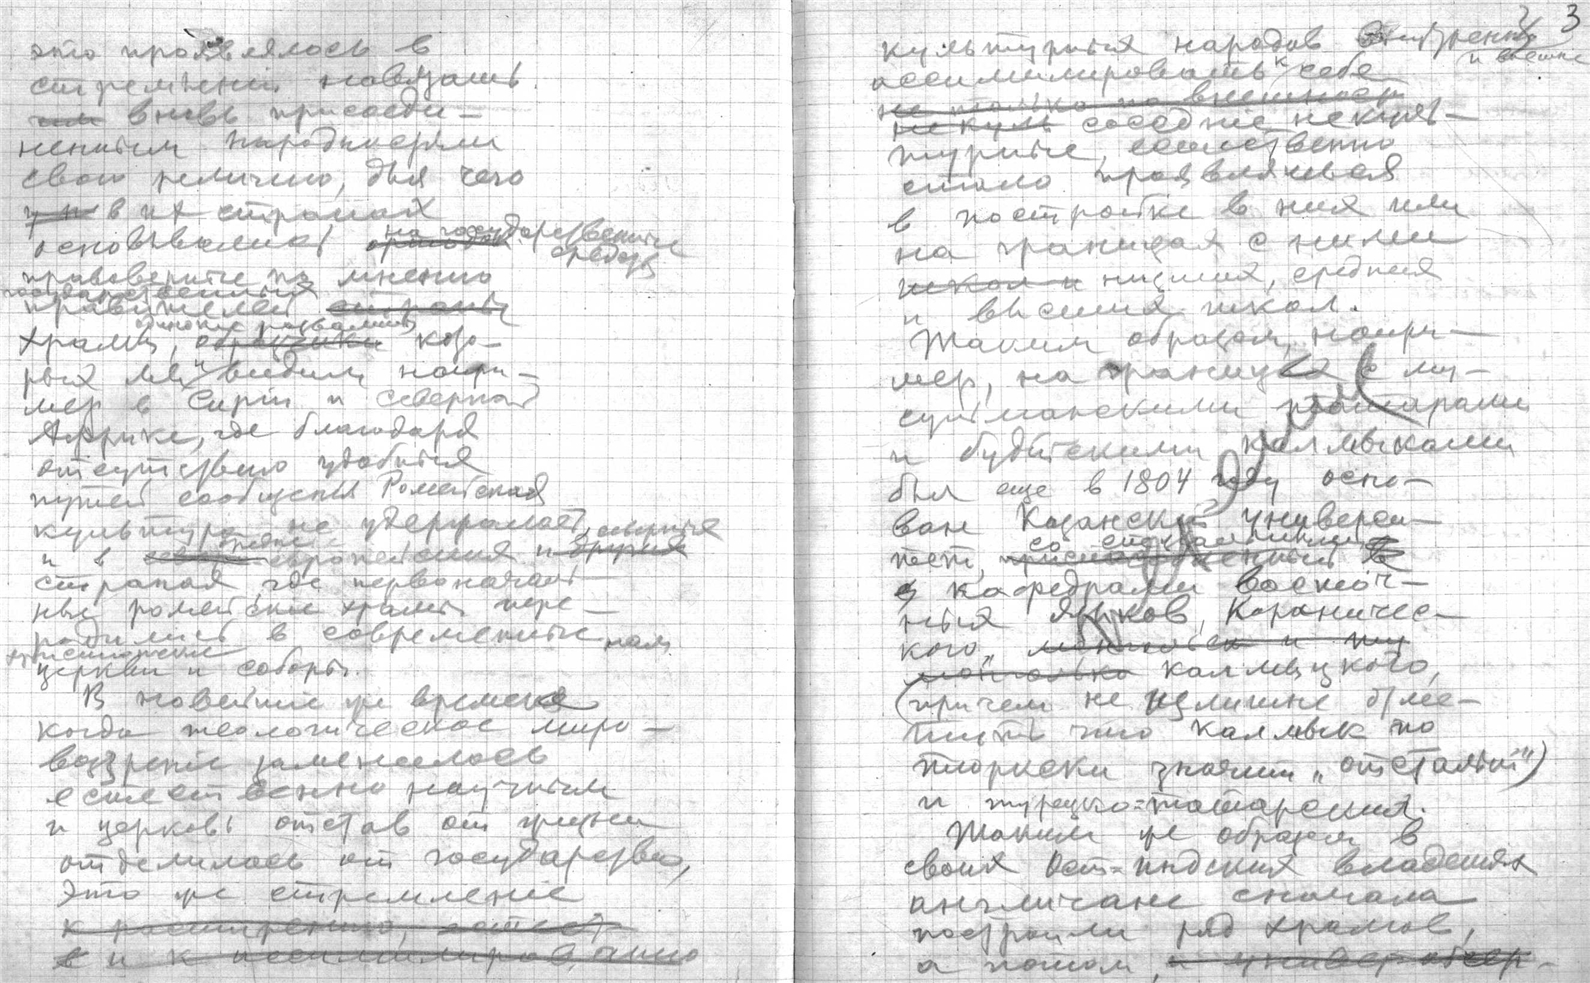 это проявлялось в
стремленiи навязать
вновь присоеди-
неннымъ народностям
свою религию, для чего
в их странах
основывались на государственные
средства
правоверные по мнению
государственных
правителей
храмы, развалины кото-
рых мы и видим напри-
мер в Сирiи и Северной
Африке, где благодаря
отсутствiю удобных
путей сообщенiя Ромейская
культура не удержалась,
и в европейских и других
странах, где первоначаль-
ные ромейские храмы пере-
родились в современные нам
христианские
церкви и соборы.
В новейшие же времена
когда теологическое миро-
воззренiе заменилось
естественно научным
и церковь отстав от жизни
отделилась от государства,
это же стремленiе
к расширению,
и к ассимилированию
3
культурных народов
и внешне
ассимилировать к себе
не только по внешност
не куль соседние некуль-
турные, естественно
стало проявляться
в постройке в них или
на границах с ними
школ и низших, средних
и высших школ.
Таким образом, напри-
мер, на границах с му-
сульманскими татарами
и будiйскими калмыками
был еще в 1804 году осно-
ван Казанский универси-
тет, со специальными
с кафедрами восточ-
ных языков, Кораничес-
кого,
калмыцкого,
(причем не излишне отме-
тить что калмык по
тюркски значит „отсталый")
и турецко-татарских.
Таким же образом в
своих Ост-индских владениях
англичане сначала
построили ряд храмов,
а потом,